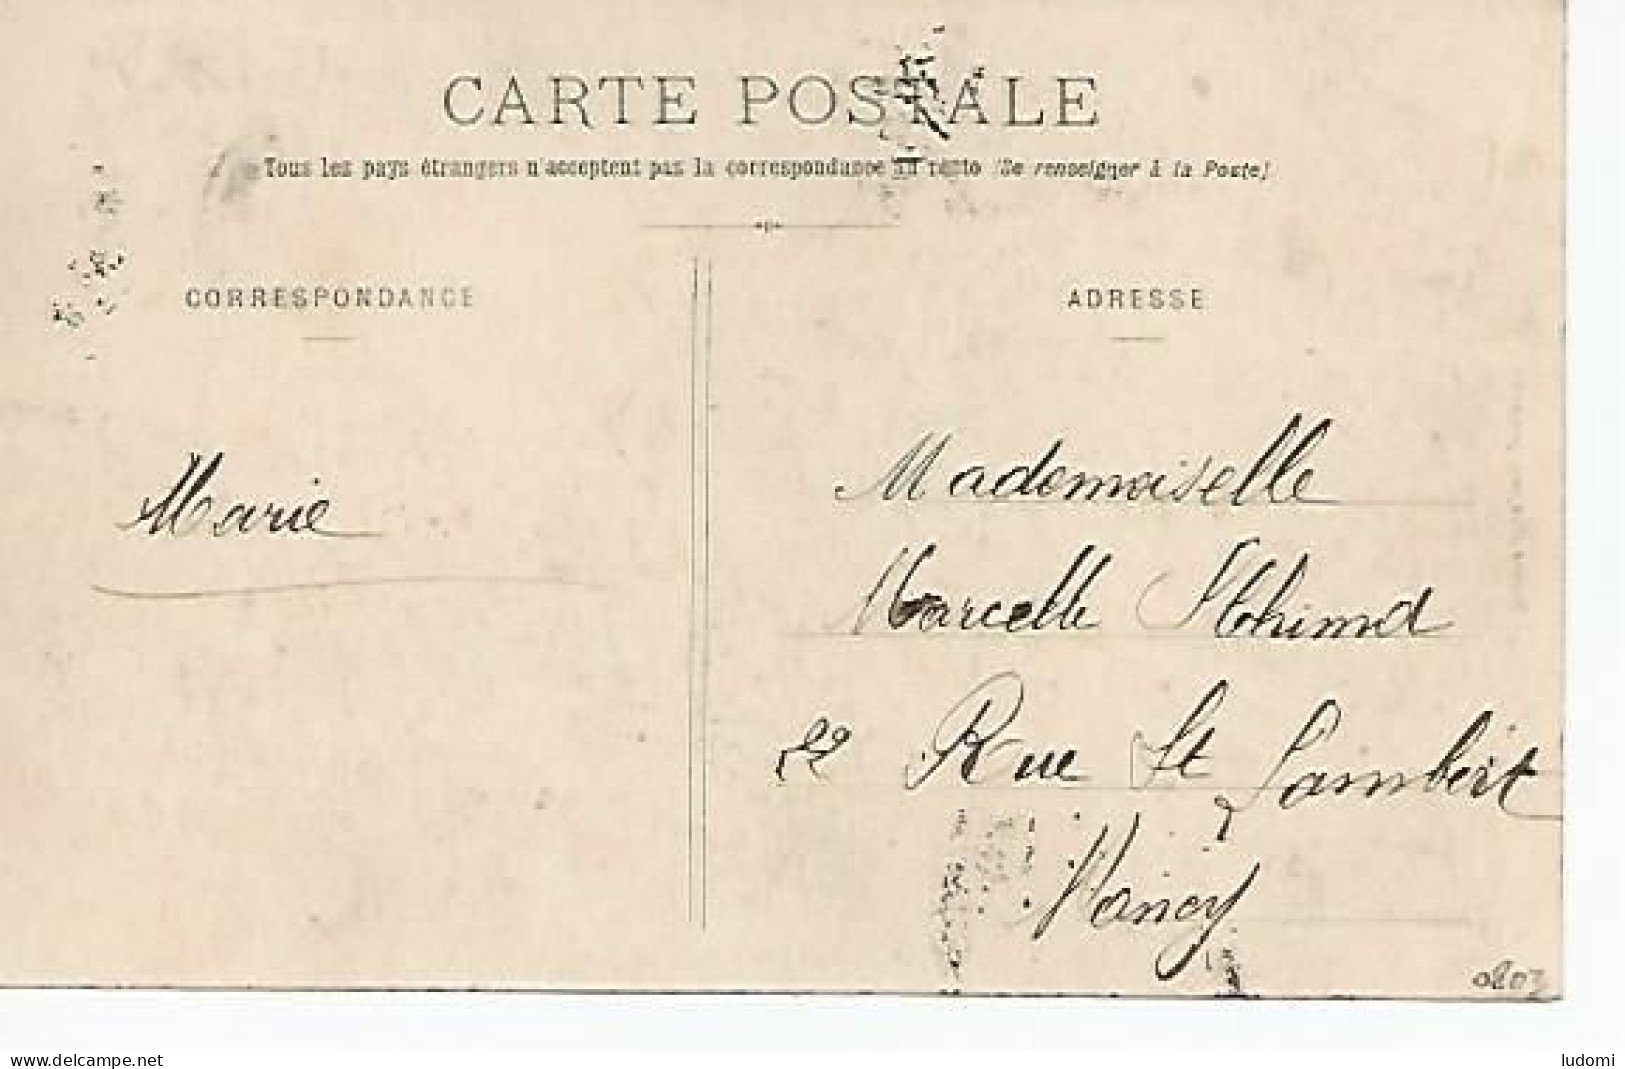 CARTE POSTALE
Tous les pays étrangers n'acceptent pas la correspondance au recto (Se renseigner à la Poste)
CORRESPONDANCE
ADRESSE
Marie
Mademoiselle
Marcelle
22 Rue St Lambert
Nancy
www.delcampe.net
ludomi